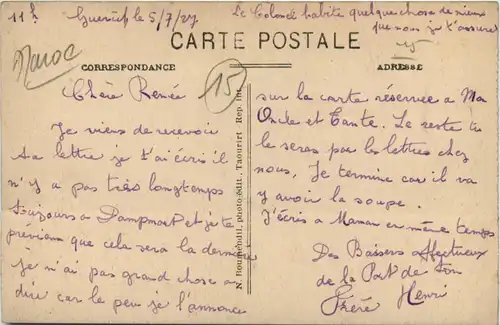 11h Guercif le 5/7/27 Le Colonel habite quelque chose de mieux
que nous je t'assure
Maroc
CARTE POSTALE
CORRESPONDANCE
ADRESSE
15
15
Chère Renée
Je viens de recevoir
ta lettre je t'ai écris il
n'y a pas très longtemps
toujours a Dampmart et je te
préviens que cela sera la dernière
je n'ai pas grand chose a
dire car le peu je l'annonce
N. Boumendil, photo-édit. Taourirt - Rep. int.
sur la carte réservee a Ma
Oncle et Tante. Le reste tu
le seras par les lettres chez
nous. Je termine car il va
y avoir la soupe.
J'écris a Maman en même temps
Des Baisers affectueux
de la Part de ton
Frère Henri